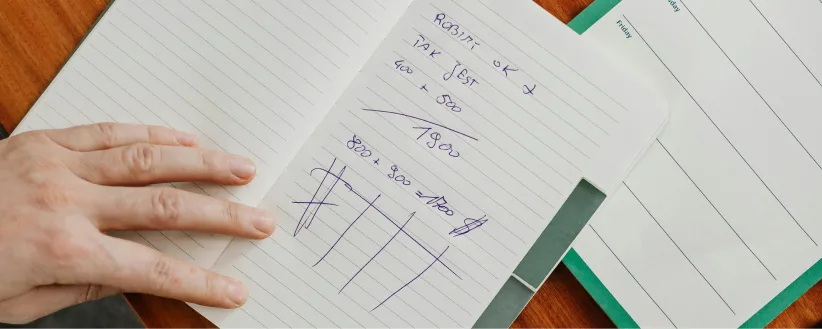 ROBIMY OK
TAK JEST
400
+ 500
1900
800 + 900 = 1700
Friday